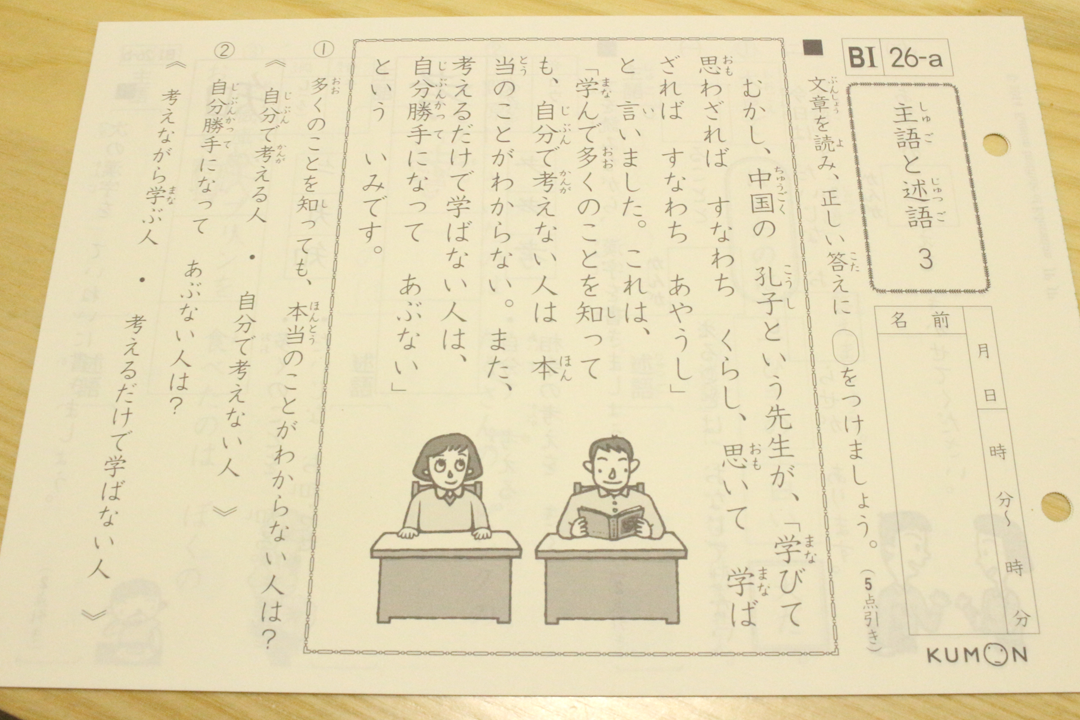 BI 26-a
主語と述語 3
月 日 時 分〜 時 分
名前
KUMON
■ 文章を読み、正しい答えに ◯をつけましょう。(5点引き)
むかし、中国の 孔子という先生が、「学びて
思わざれば すなわち くらし、 思いて 学ば
ざれば すなわち あやうし」
と 言いました。これは、
「学んで多くのことを知って
も、自分で考えない人は 本
当のことがわからない。また、
考えるだけで学ばない人は、
自分勝手になって あぶない」
という いみです。
① 多くのことを知っても、本当のことがわからない人は?
《 自分で考える人 ・ 自分で考えない人 》
② 自分勝手になって あぶない人は?
《 考えながら学ぶ人 ・ 考えるだけで学ばない人 》